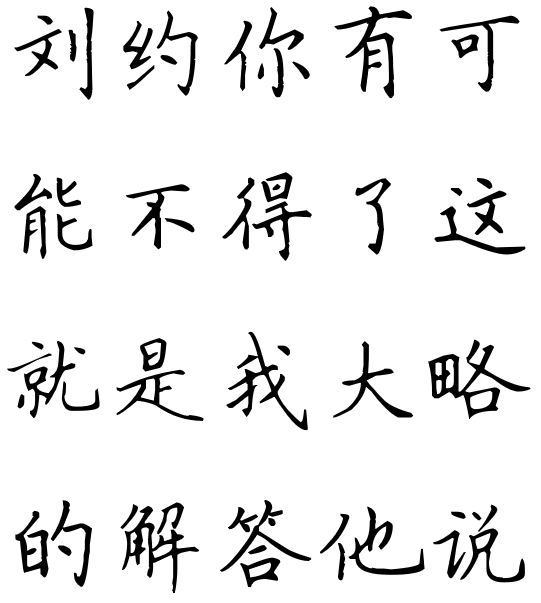 刘约你有可
能不得了这
就是我大略
的解答他说